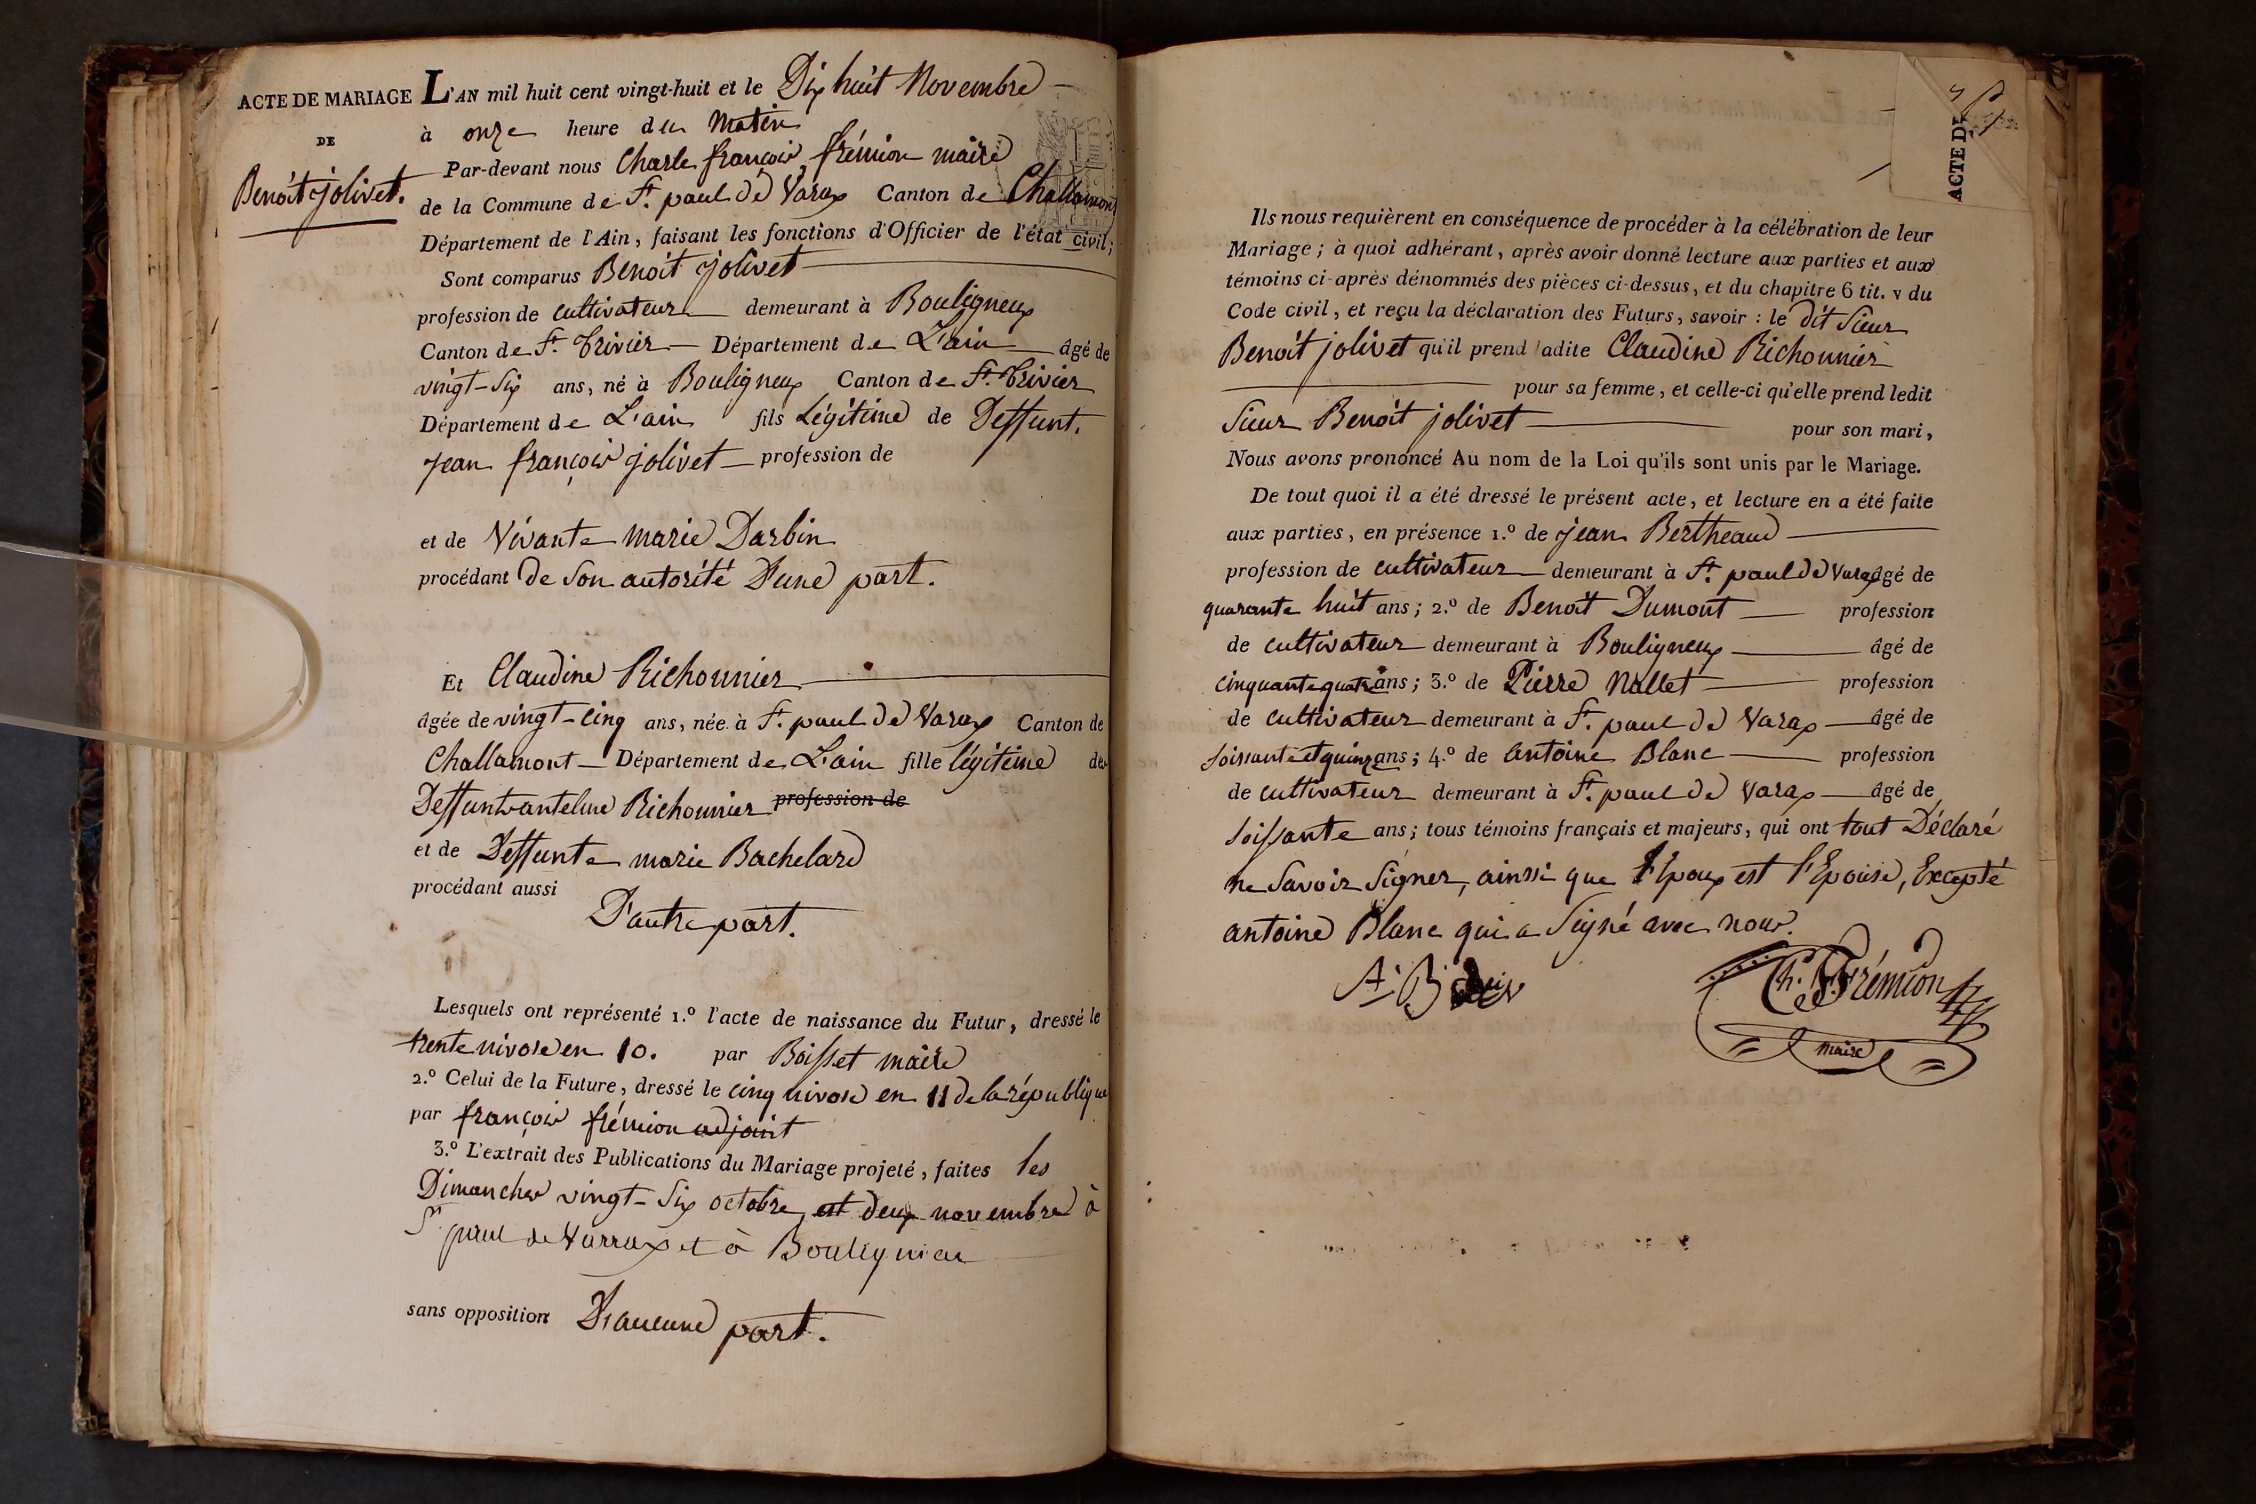 ACTE DE MARIAGE
DE
Benoit jolivet.
L'AN mil huit cent vingt-huit et le Dix huit Novembre
à onze heure du Matin
Par-devant nous Charle françois frémion maire
de la Commune de St. paul de Varax Canton de Challamont
Département de l'Ain, faisant les fonctions d'Officier de l'état civil;
Sont comparus Benoit jolivet
profession de cultivateur demeurant à Bouligneux
Canton de St. Trivier Département de L'ain âgé de
vingt-six ans, né à Bouligneux Canton de St. Trivier
Département de L'ain fils Légitime de Deffunt.
jean françois jolivet profession de
et de Vivante marie Darbin
procédant de son autorité D'une part.
Et Claudine Richonnier
âgée de vingt-cinq ans, née à St. paul de Varax Canton de
Challamont Département de L'ain fille légitime de
Deffunt antelme Richonnier profession de
et de Deffunte marie Bachelard
procédant aussi
D'autre part.
Lesquels ont représenté 1.º l'acte de naissance du Futur, dressé le
trente nivose en 10. par Boisset maire
2.º Celui de la Future, dressé le cinq nivose en 11 de la république
par françois frémion adjoint
3.º L'extrait des Publications du Mariage projeté, faites les
Dimanches vingt-six octobre, et deux novembre à
St paul de Varrax et à Bouligneu
sans opposition D'aucune part.
ACTE DE
Ils nous requièrent en conséquence de procéder à la célébration de leur
Mariage; à quoi adhérant, après avoir donné lecture aux parties et aux
témoins ci-après dénommés des pièces ci-dessus, et du chapitre 6 tit. v du
Code civil, et reçu la déclaration des Futurs, savoir: le dit Sieur
Benoit jolivet qu'il prend ladite Claudine Richonnier
pour sa femme, et celle-ci qu'elle prend ledit
Sieur Benoit jolivet pour son mari,
Nous avons prononcé Au nom de la Loi qu'ils sont unis par le Mariage.
De tout quoi il a été dressé le présent acte, et lecture en a été faite
aux parties, en présence 1.º de jean Bertheaud
profession de cultivateur demeurant à St. paul de Varax âgé de
quarante huit ans; 2.º de Benoit Dumont profession
de cultivateur demeurant à Bouligneux âgé de
cinquante quatre ans; 3.º de Pierre Nallet profession
de cultivateur demeurant à St. paul de Varax âgé de
soissante et quinze ans; 4.º de antoine Blanc profession
de cultivateur demeurant à St. paul de Varax âgé de
soissante ans; tous témoins français et majeurs, qui ont tout Déclaré
ne savoir signer, ainsi que l'Epoux est l'Epouse, Excepté
antoine Blanc qui a signé avec nous.
Ch. F. Frémion
maire